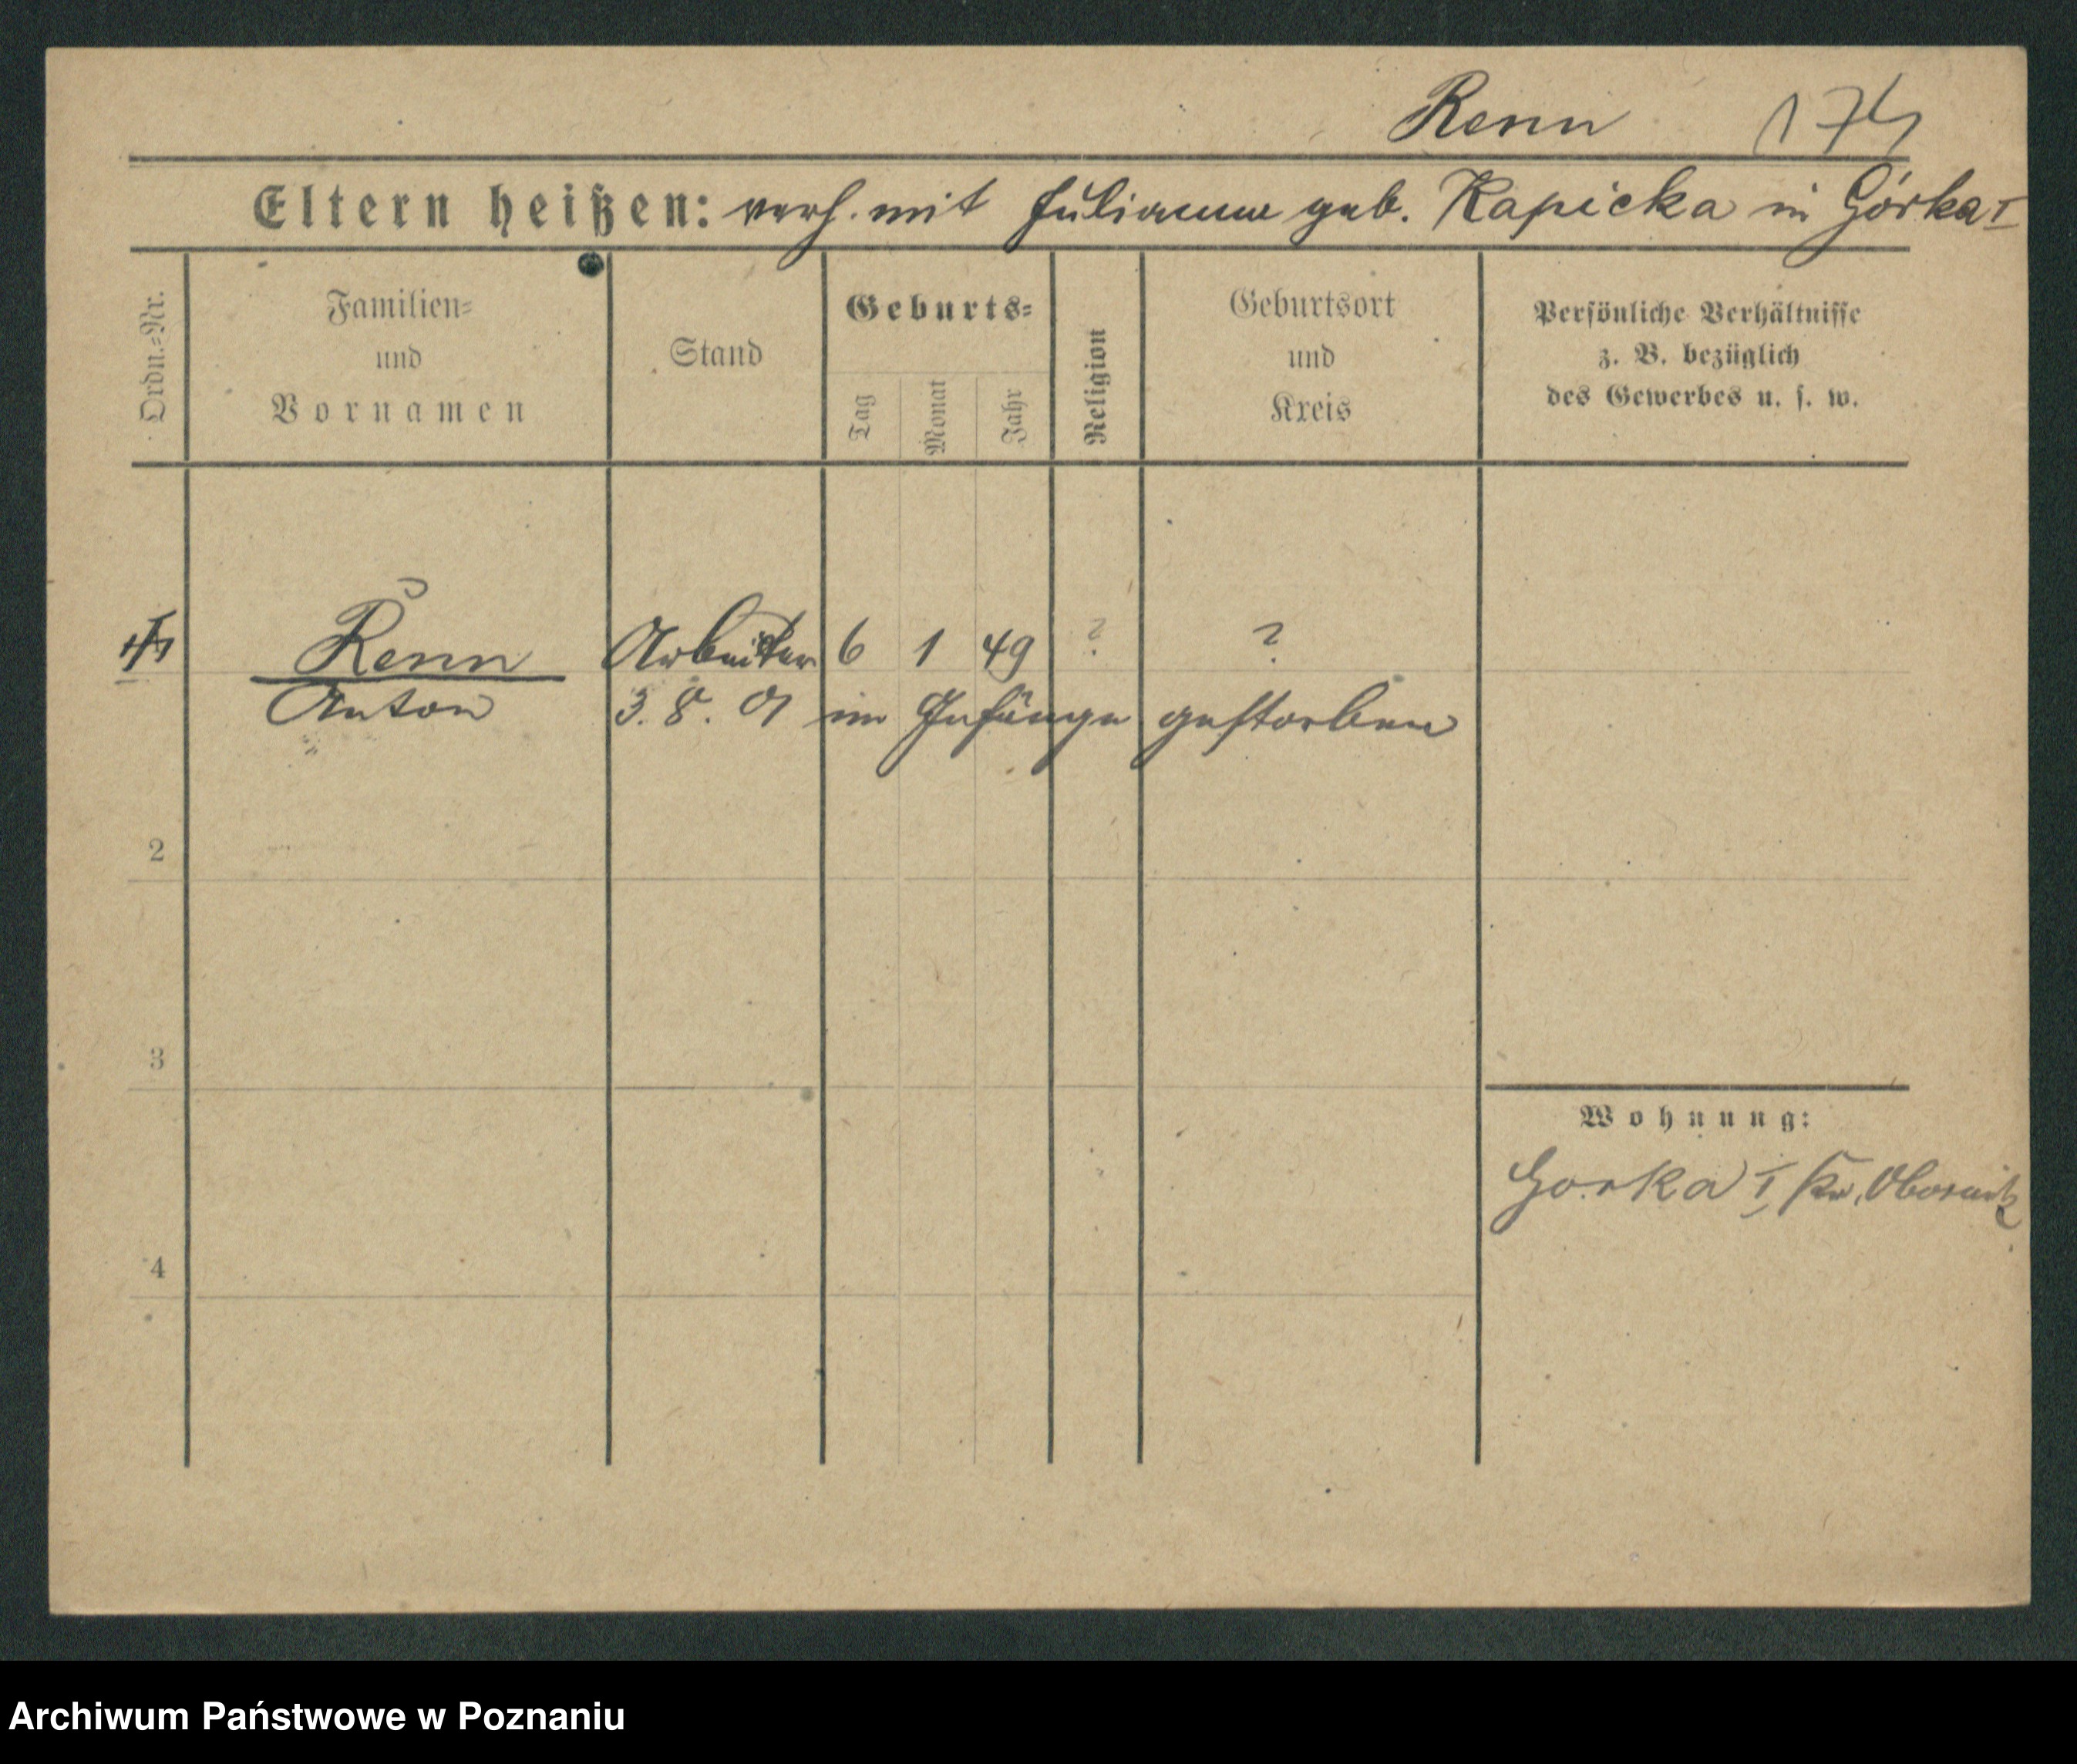 Renn 174
Eltern heißen: verh. mit Julianna geb. Kapicka in Górka I
Ordn.-Nr.
Familien-
und
Vornamen
Stand
Geburts-
Tag
Monat
Jahr
Religion
Geburtsort
und
Kreis
Persönliche Verhältnisse
z. B. bezüglich
des Gewerbes u. s. w.
Renn Arbeiter 6 1 49 ? ?
Anton 3. 8. 01 im gestorben
2
3
Wohnung:
Gorka I Kr. Obornik
4
Archiwum Państwowe w Poznaniu